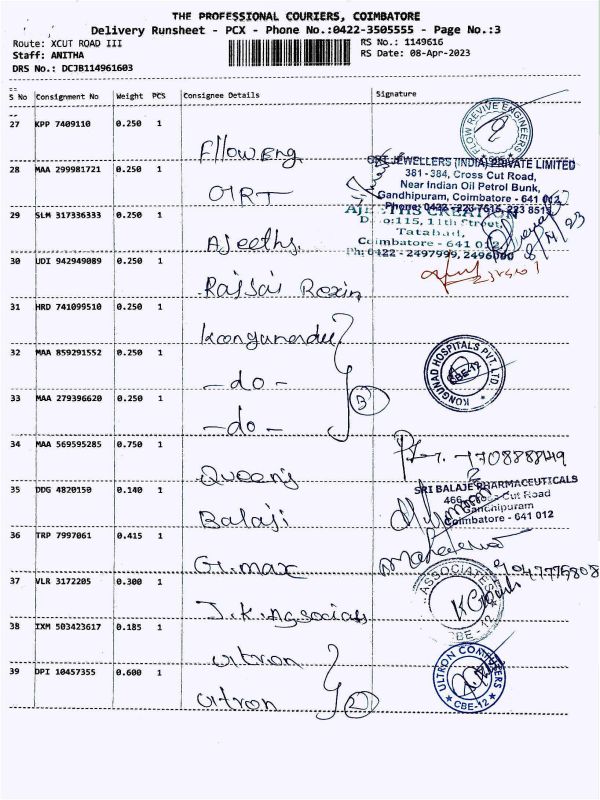 THE PROFESSIONAL COURIERS, COIMBATORE
Delivery Runsheet - PCX - Phone No.:0422-3505555 - Page No.:3
Route: XCUT ROAD III RS No.: 1149616
Staff: ANITHA RS Date: 08-Apr-2023
DRS No.: DCJB114961603
S No Consignment No Weight PCS Consignee Details Signature
27 KPP 7409110 0.250 1
FLOW REVIVE ENGINEERS
28 MAA 299981721 0.250 1
ORT JEWELLERS (INDIA) PRIVATE LIMITED
381 - 384, Cross Cut Road,
Near Indian Oil Petrol Bunk,
Gandhipuram, Coimbatore - 641 012
Phone: 0422 - 223 7615, 223 851
ORT
29 SLM 317336333 0.250 1
AJEETHS CREATION
D. No:115, 11th Street,
Tatabad,
Coimbatore - 641 012
Ph: 0422 - 2497999, 2496000
8/4/23
Ajeeths
30 UDI 942949089 0.250 1
Rajsai Rexin
31 HRD 741099510 0.250 1
Kongunandu
32 MAA 859291552 0.250 1
KONGUNAD HOSPITALS PVT. LTD.
CBE-12
- do -
33 MAA 279396620 0.250 1
3
- do -
34 MAA 569595285 0.750 1
Queens
35 DDG 4820150 0.140 1
SRI BALAJE PHARMACEUTICALS
466, Cross Cut Road
Gandhipuram
Coimbatore - 641 012
Balaji
36 TRP 7997061 0.415 1
G.max
37 VLR 3172205 0.300 1
ASSOCIATES
CBE - 12
J.K. Associates
38 IXM 503423617 0.185 1
ultron
39 DPI 10457355 0.600 1
ULTRON COMPUTERS
CBE-12
ultron 2